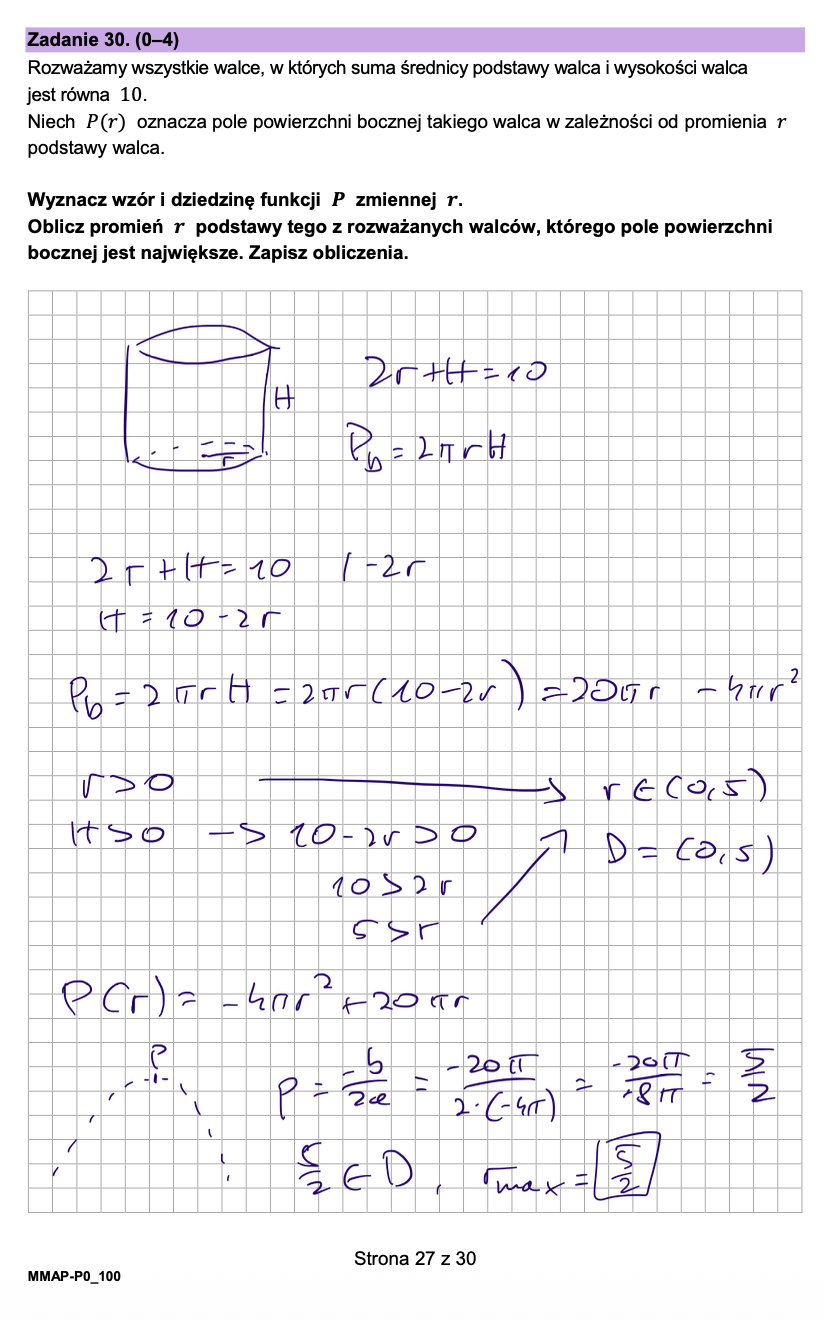 Zadanie 30. (0–4)
Rozważamy wszystkie walce, w których suma średnicy podstawy walca i wysokości walca
jest równa 10.
Niech P(r) oznacza pole powierzchni bocznej takiego walca w zależności od promienia r
podstawy walca.
Wyznacz wzór i dziedzinę funkcji P zmiennej r.
Oblicz promień r podstawy tego z rozważanych walców, którego pole powierzchni
bocznej jest największe. Zapisz obliczenia.
H
r
2r+H=10
P_b = 2πrH
2r+H=10 / -2r
H = 10-2r
P_b = 2πrH = 2πr(10-2r) = 20πr - 4πr²
r>0 → r∈(0,5)
H>0 -> 10-2r>0 D = (0,5)
10>2r
5>r
P(r) = -4πr² + 20πr
p
p = -b/2a = -20π/2·(-4π) = -20π/-8π = 5/2
5/2 ∈ D, r_max = 5/2
Strona 27 z 30
MMAP-P0_100